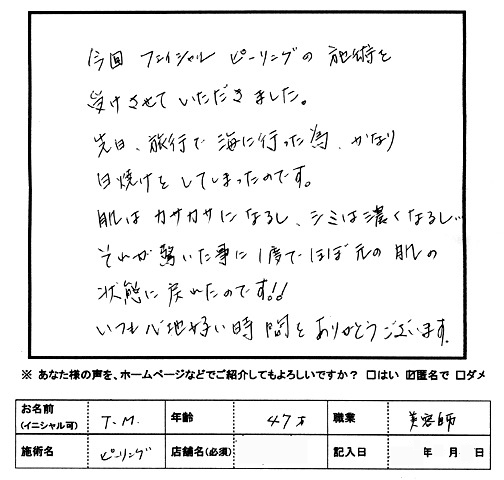 今回 フェイシャル ピーリングの 施術を
受けさせていただきました。
先日、旅行で 海に行った為、かなり
日焼けをしてしまったのです。
肌は カサカサになるし、シミは濃くなるし…
それが驚いた事に 1度で ほぼ元の肌の
状態に 戻れたのです!!
いつも心地好い時間を ありがとうございます。
※ あなた様の声を、ホームページなどでご紹介してもよろしいですか？ □はい ☑匿名で □ダメ
お名前
(イニシャル可) T.M. 年齢 47才 職業 美容師
施術名 ピーリング 店舗名(必須) 記入日 年 月 日